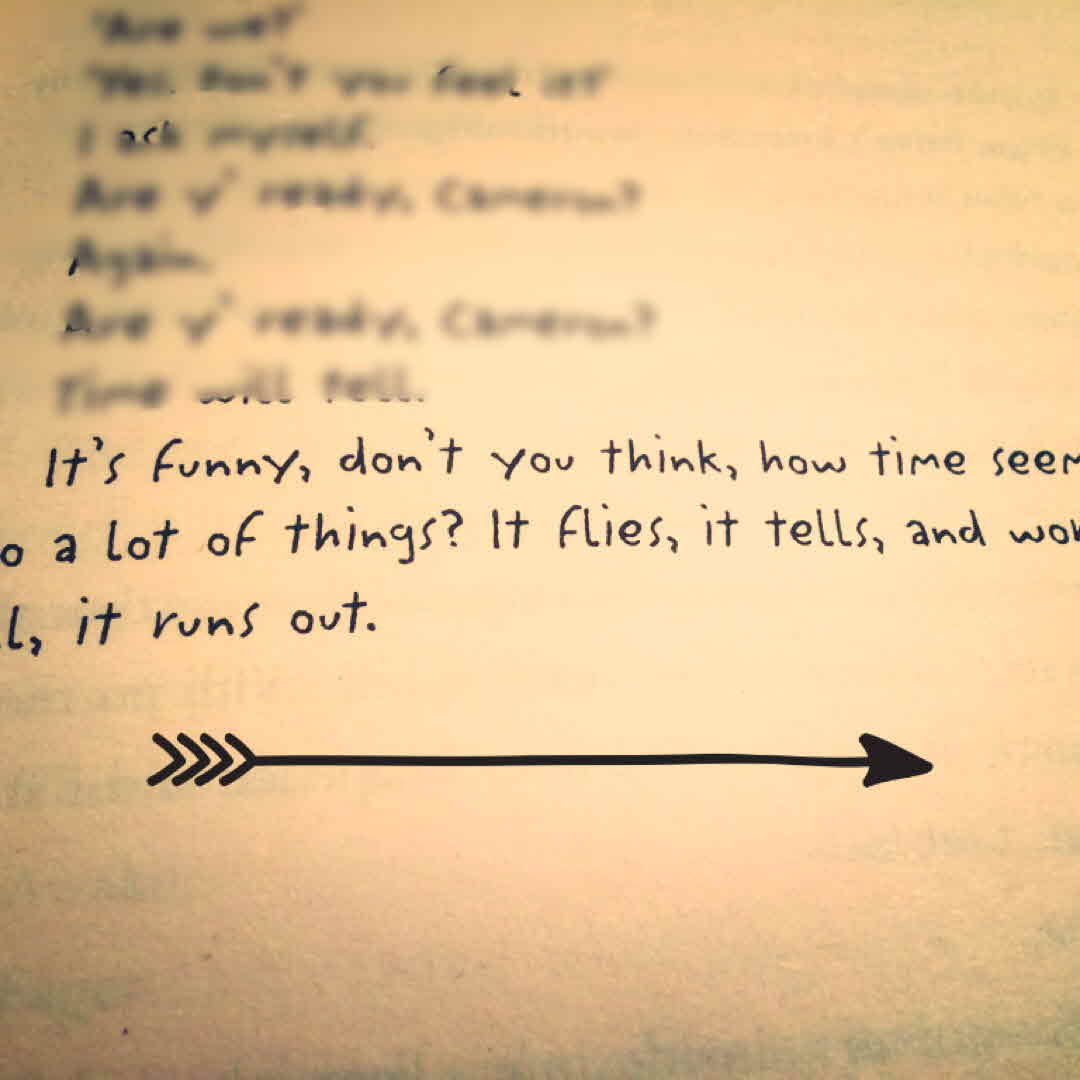 'Are we?'
'Yes. Don't you feel it?'
I ask myself.
Are y' ready, Cameron?
Again.
Are y' ready, Cameron?
Time will tell.
It's funny, don't you think, how time seem
o a lot of things? It flies, it tells, and wor
l, it runs out.